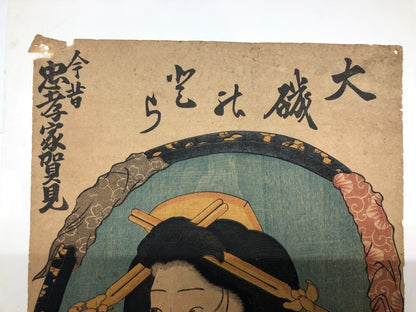 大磯のとら
今昔
忠孝家賀見